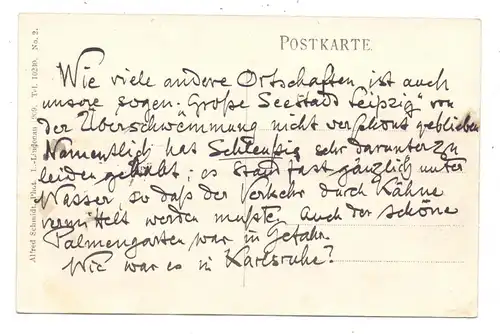 POSTKARTE.
Wie viele andere Ortschaften, ist auch
unsere sogen. Große Seestadt Leipzig" von
der Überschwemmung nicht verschont geblieben.
Namentlich hat Schleußig sehr darunter zu
leiden gehabt; es stand fast gänzlich unter
Wasser, so daß der Verkehr durch Kähne
vermittelt werden mußte. Auch der schöne
Palmengarten war in Gefahr.
Wie war es in Karlsruhe?
Alfred Schmidt, Phot. L.-Lindenau Tel. 10240. No. 2.